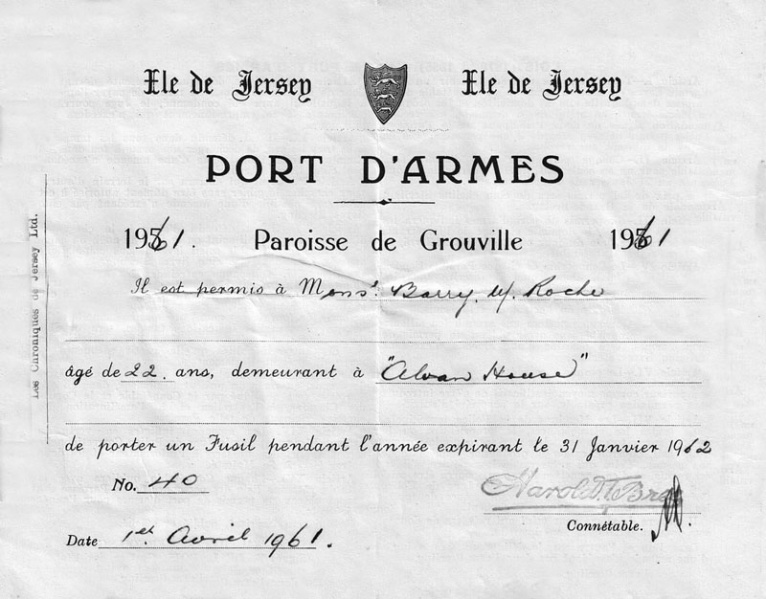 Ile de Jersey Ile de Jersey
PORT D'ARMES
1961. Paroisse de Grouville 1961
Il est permis à Monsr. Barry. M. Roche
âgé de 22 ans, demeurant à "Alvan House"
de porter un Fusil pendant l'année expirant le 31 Janvier 1962
No. 40
Harold
Connétable.
Date 1er Avril 1961.
Les Chroniques de Jersey Ltd.